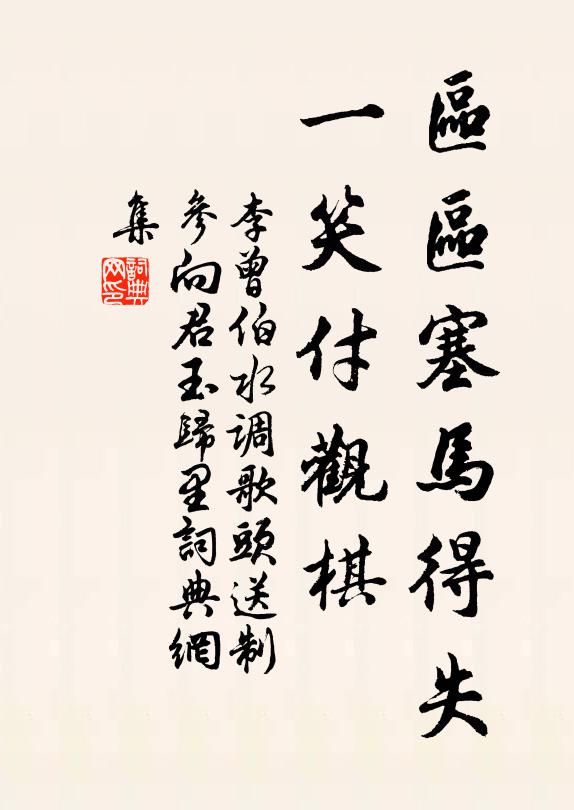 區區塞馬得失
一笑付觀棋
李曾伯水調歌頭送制
參向君玉歸里詞典網
集
詞典
网印